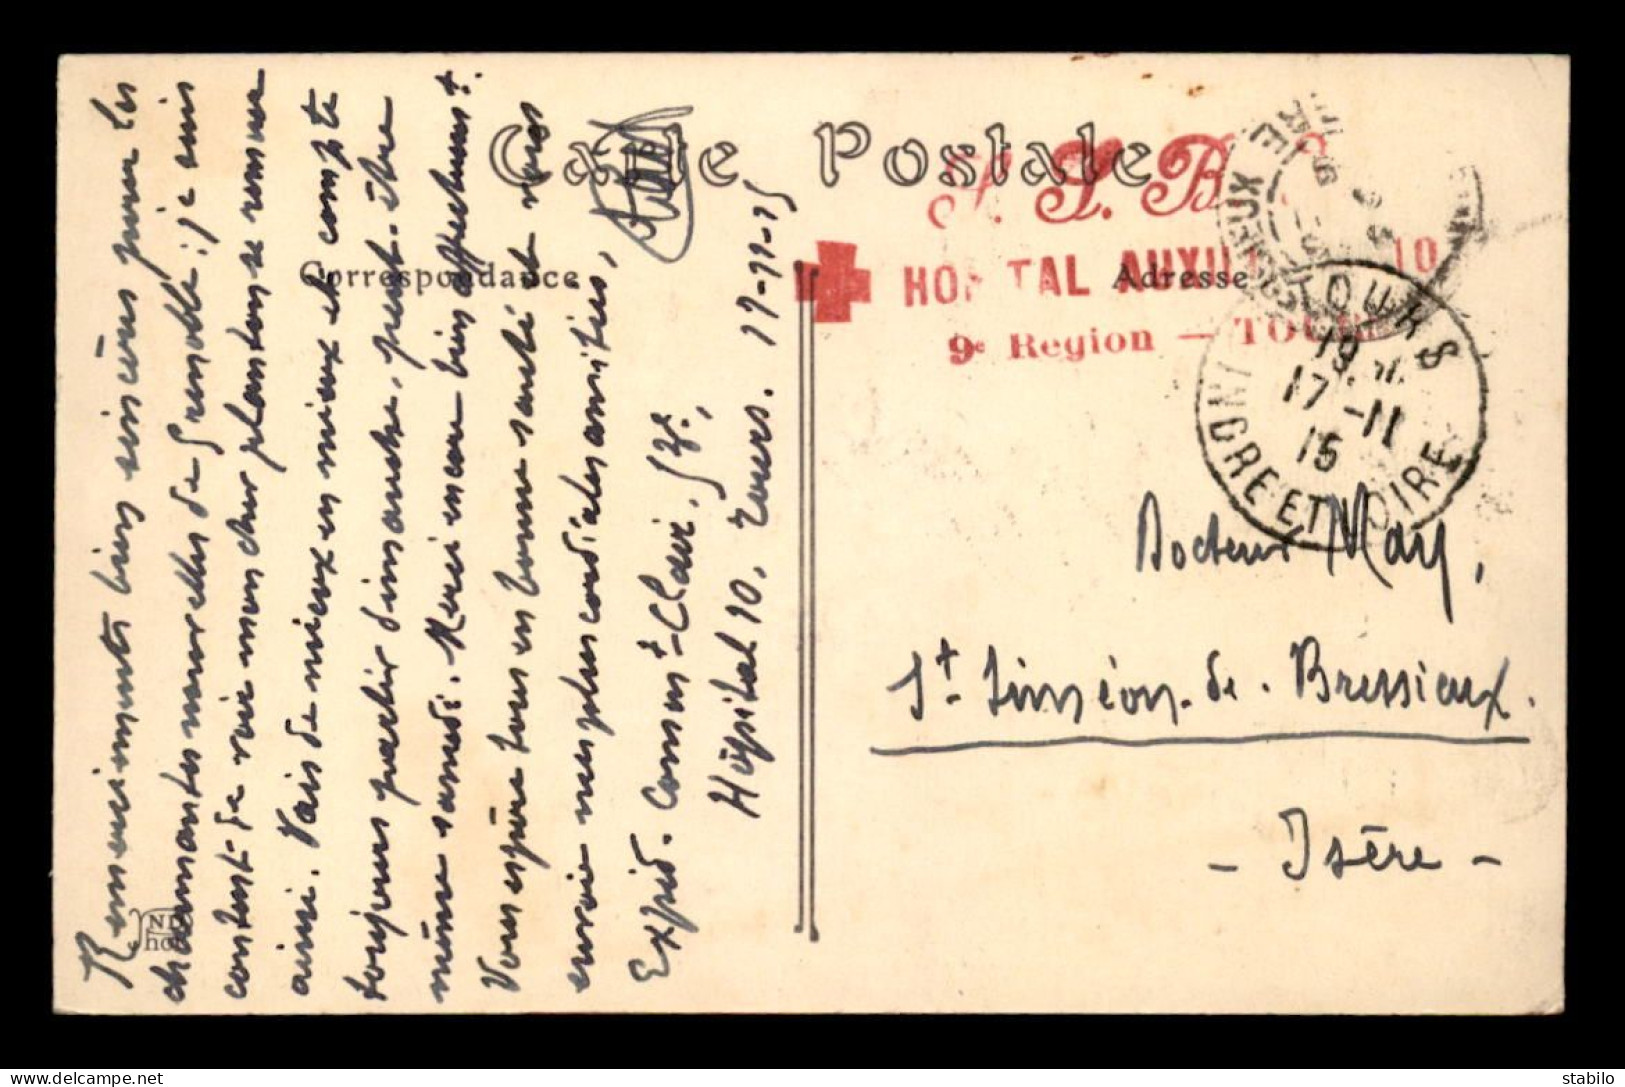 Carte Postale
Correspondance
Adresse
Remerciements bien sincères pour les
charmantes nouvelles de Grenoble ; je suis
content de voir mon cher planton se remuer
ainsi. Vais de mieux en mieux et compte
toujours partir dimanche, peut-être
même samedi. Merci encore bien affectueusent.
Vous espère tous en bonne santé et vous
envoie mes plus cordiales amitiés,
Expéd. Commt-Clair, 
Hôpital 10, Tours. 17-11-15
S. B.
HOPITAL AUXIL 10
9e Region — TOURS
TOURS
19
17 - 11
15
INDRE ET LOIRE
Docteur May,
St Siméon-de-Bressieux.
- Isère -
ND
Phot
stabilo